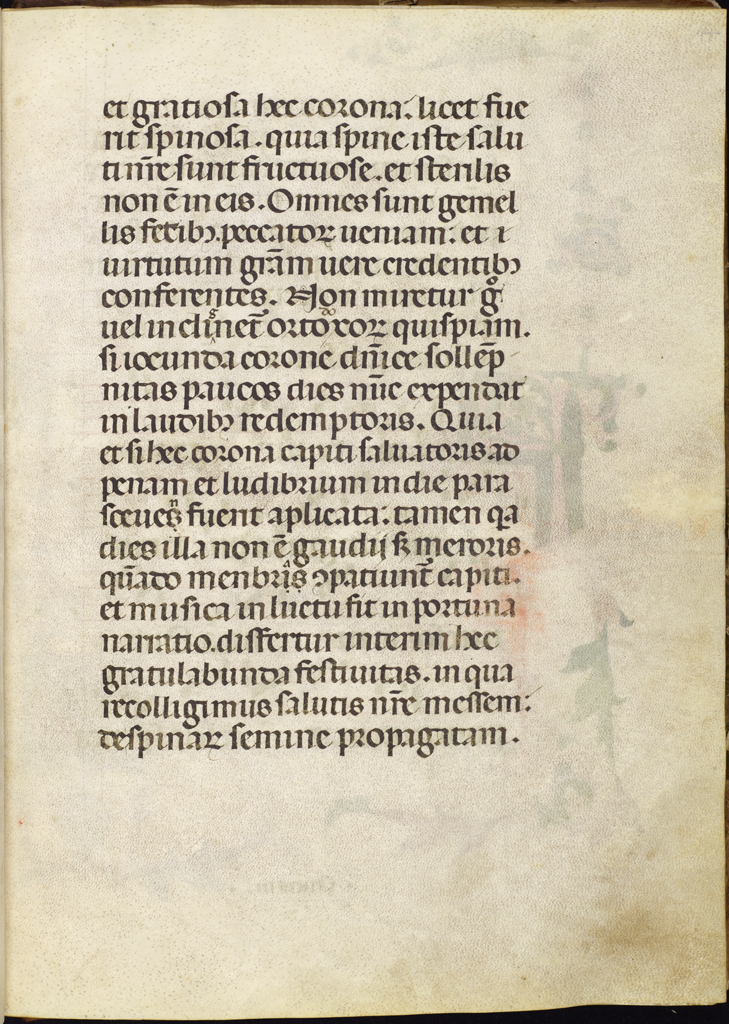 et gratiosa hec corona: licet fue
rit spinosa. quia spine iste salu
ti nr̄e sunt fructuose. et sterilis
non ē in eis. Omnes sunt gemel
lis fetibꝫ. peccatoꝝ ueniam: et ĩ
uirtutum grām uere credentibꝫ
conferentes. Non miretur gͦ
uel in clinet ortoxoꝝ quispiam.
si iocunda corone dīnice sollēp
nitas paucos dies nūc expendat
in laudibꝫ redemptoris. Quia
et si hec corona capiti saluatoris ad
penam et ludibrium in die para
sceues fuerit aplicata: tamen qa
dies illa non ē gaudij sꝫ meroris.
qūado menbris ꝯpatiunt̄ capiti.
et musica in luctu fit in portuna
narratio. differtur interim hec
gratulabunda festiuitas. in qua
recolligimus salutis nr̄e messem:
de spinaꝝ semine propagatam.